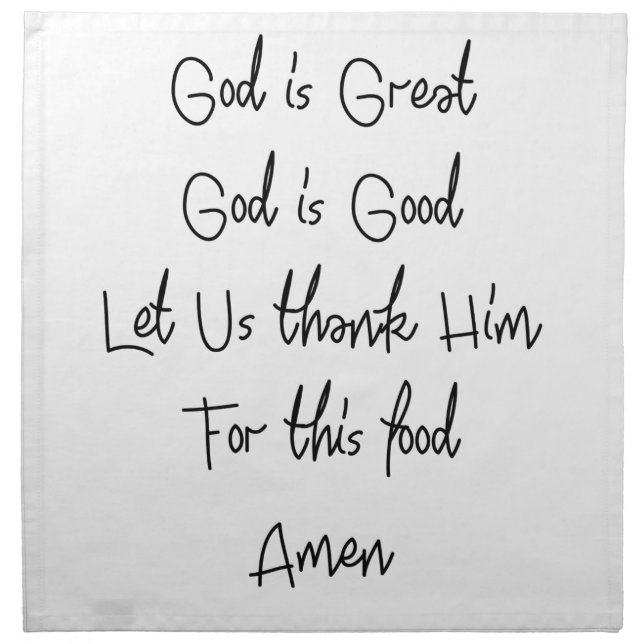 God is Great
God is Good
Let Us thank Him
For this food
Amen